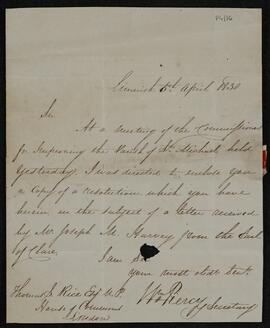 P4/16
Limerick 5th April 1830
Sir
At a meeting of the Commissioners
for Improving the Parish of St. Michael held
Yesterday, I was directed to enclose you
a Copy of a resolution which you have
herein, on the subject of a letter received
by Mr. Joseph M. Harvey from the Earl
of Clare.
I am Sir
your most obdt Servt.
Wm Piercy
Secretary
Thomas S. Rice Esqr M.P.
House of Commons
London